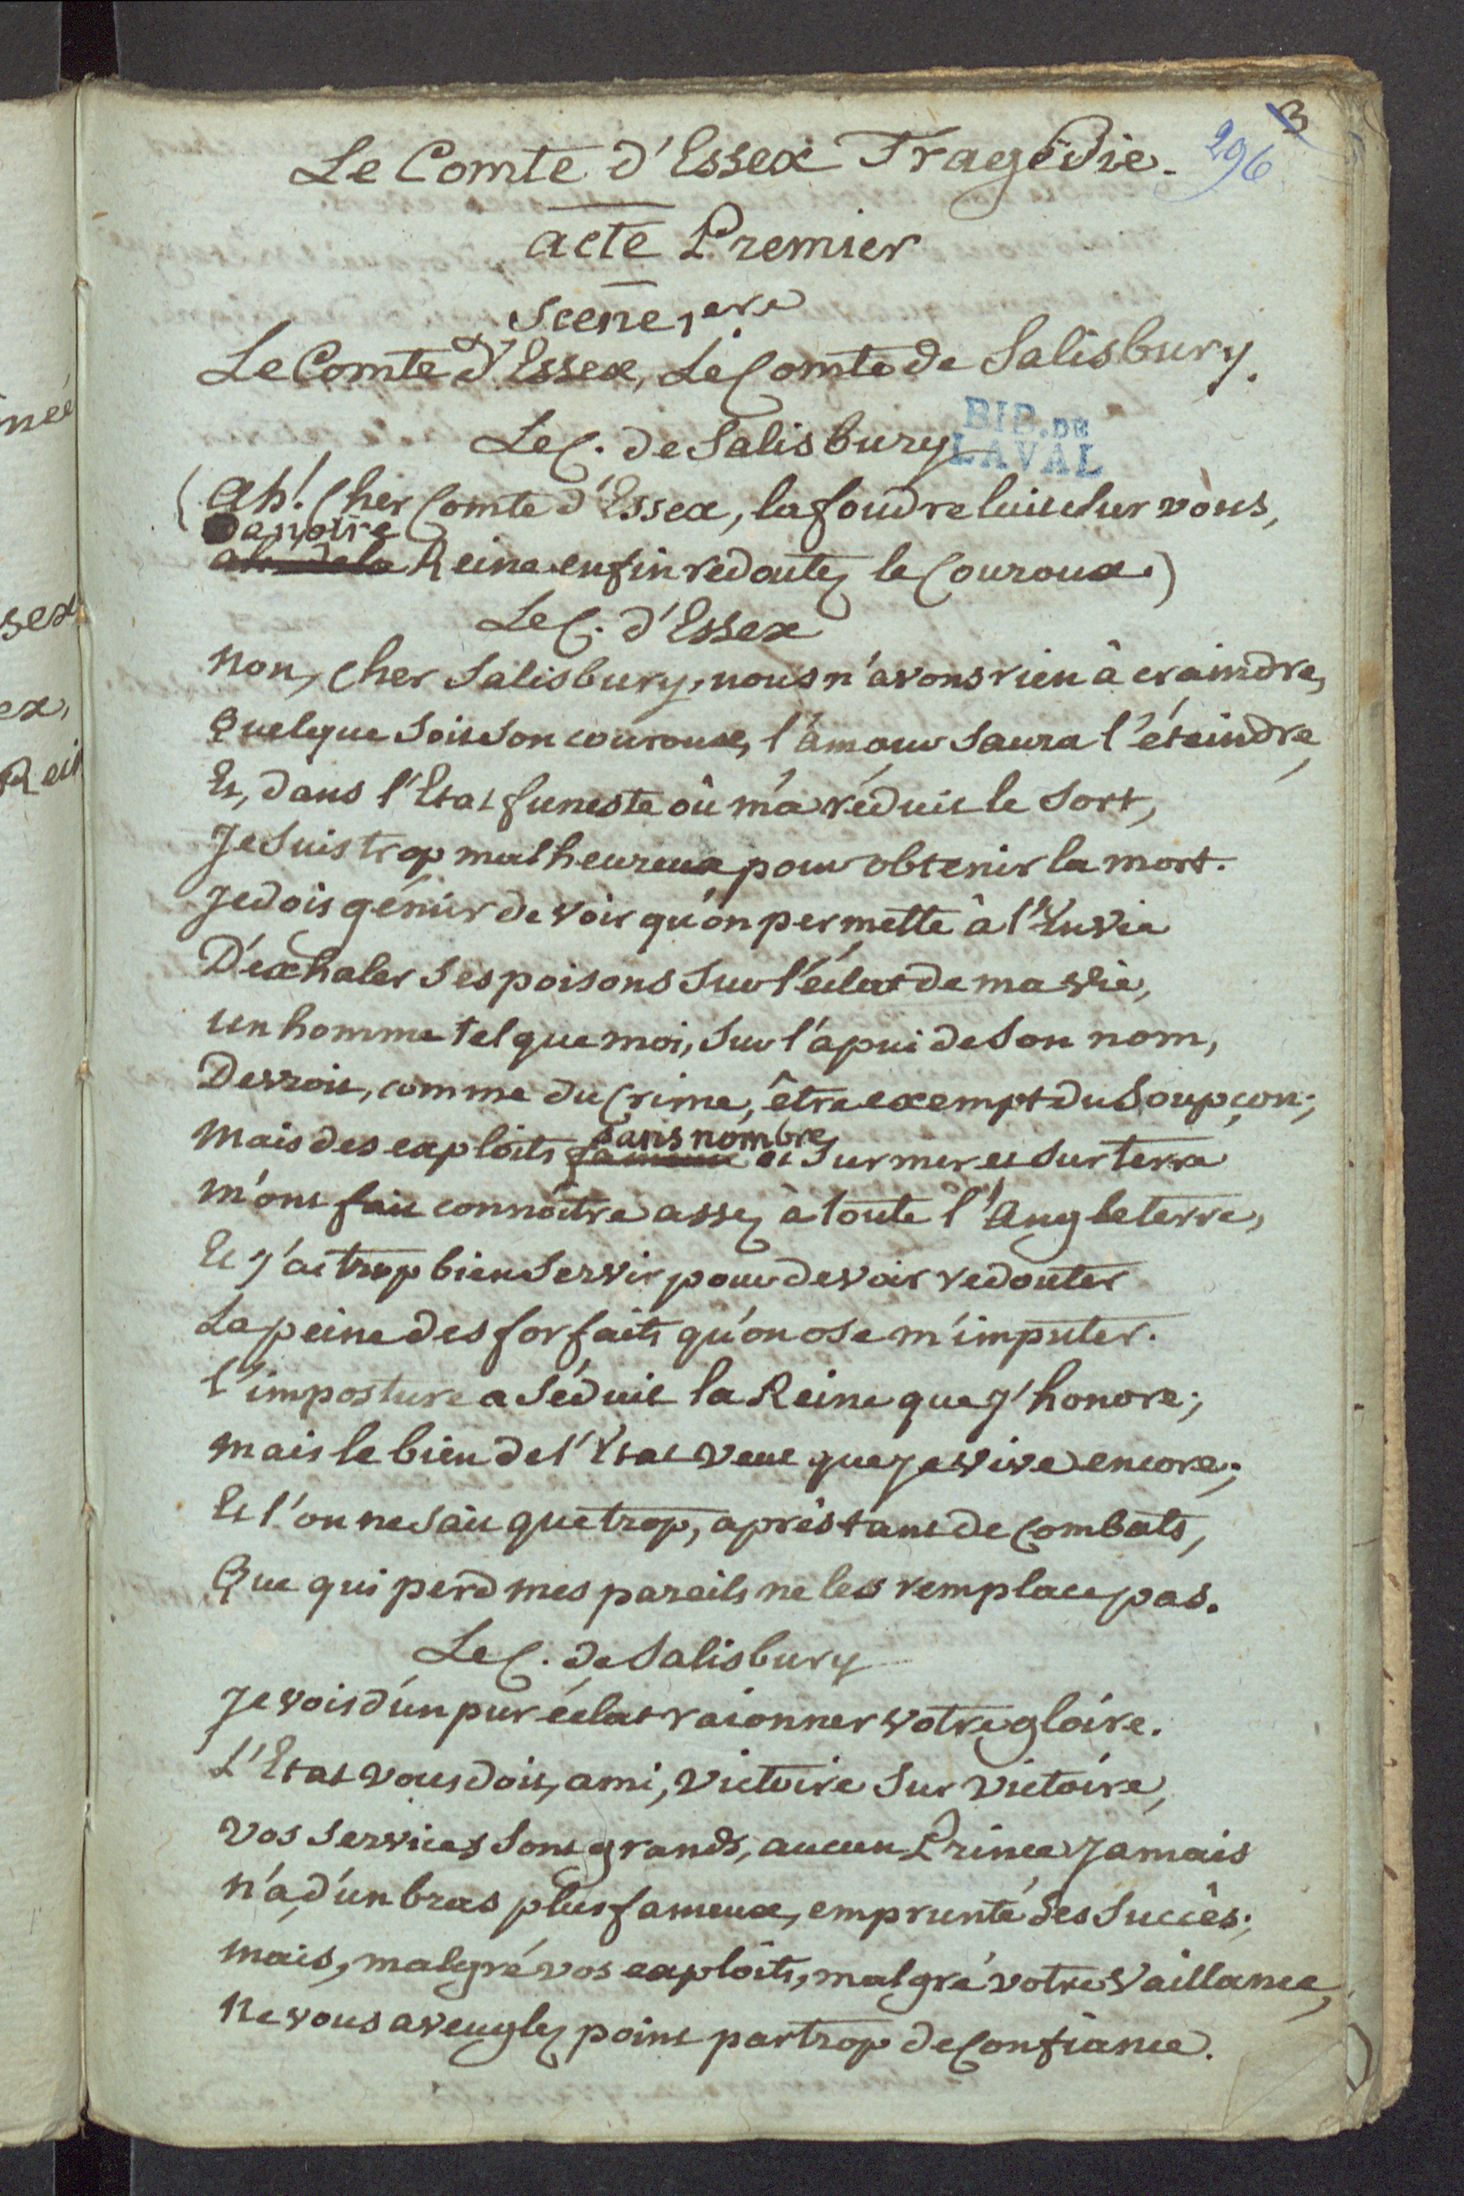 3
296
Le Comte d'Essex Tragédie.
acte Premier
Scene 1ere
Le Comte d'Essex, Le Comte de Salisbury.
BIB. DE
LAVAL
Le C. de Salisbury
(Ah! Cher Comte d'Essex, la foudre luit sur vous,
De notre
ah de la Reine enfin redoutez le Couroux.)
Le C. d'Essex
Non, cher Salisbury, nous n'avons rien à craindre,
Quelque soit son couroux, l'amour saura l'éteindre,
Et, dans l'Etat funeste où m'a réduit le sort,
Je suis trop malheureux pour obtenir la mort.
Je dois gémir de voir qu'on permette à l'Envie
D'exhaler ses poisons sur l'éclat de ma vie,
un homme tel que moi, sur l'apui de son nom,
Devroit, comme du Crime, être exempt du soupçon;
Mais des exploits sans nombre
fameux et sur mer et sur terre
M'ont fait connoître assez à toute l'Angleterre,
Et j'ai trop bien servir pour devoir redouter
La peine des forfaits qu'on ose m'imputer.
l'imposture a séduit la Reine que j'honore;
Mais le bien de l'Etat veut que je vive encore;
Et l'on ne sait que trop, après tant de Combats,
Que qui perd mes pareils ne les remplace pas.
Le C. de Salisbury
Je vois d'un pur éclat raionner votre gloire.
L'Etat vous doit, ami, victoire sur victoire,
Vos services sont grands, aucun Prince jamais
N'a, d'un bras plus fameux, emprunté des succès;
Mais, malgré vos exploits, malgré votre vaillance,
Ne vous aveuglez point par trop de Confiance.
née
sex
ex,
Rei